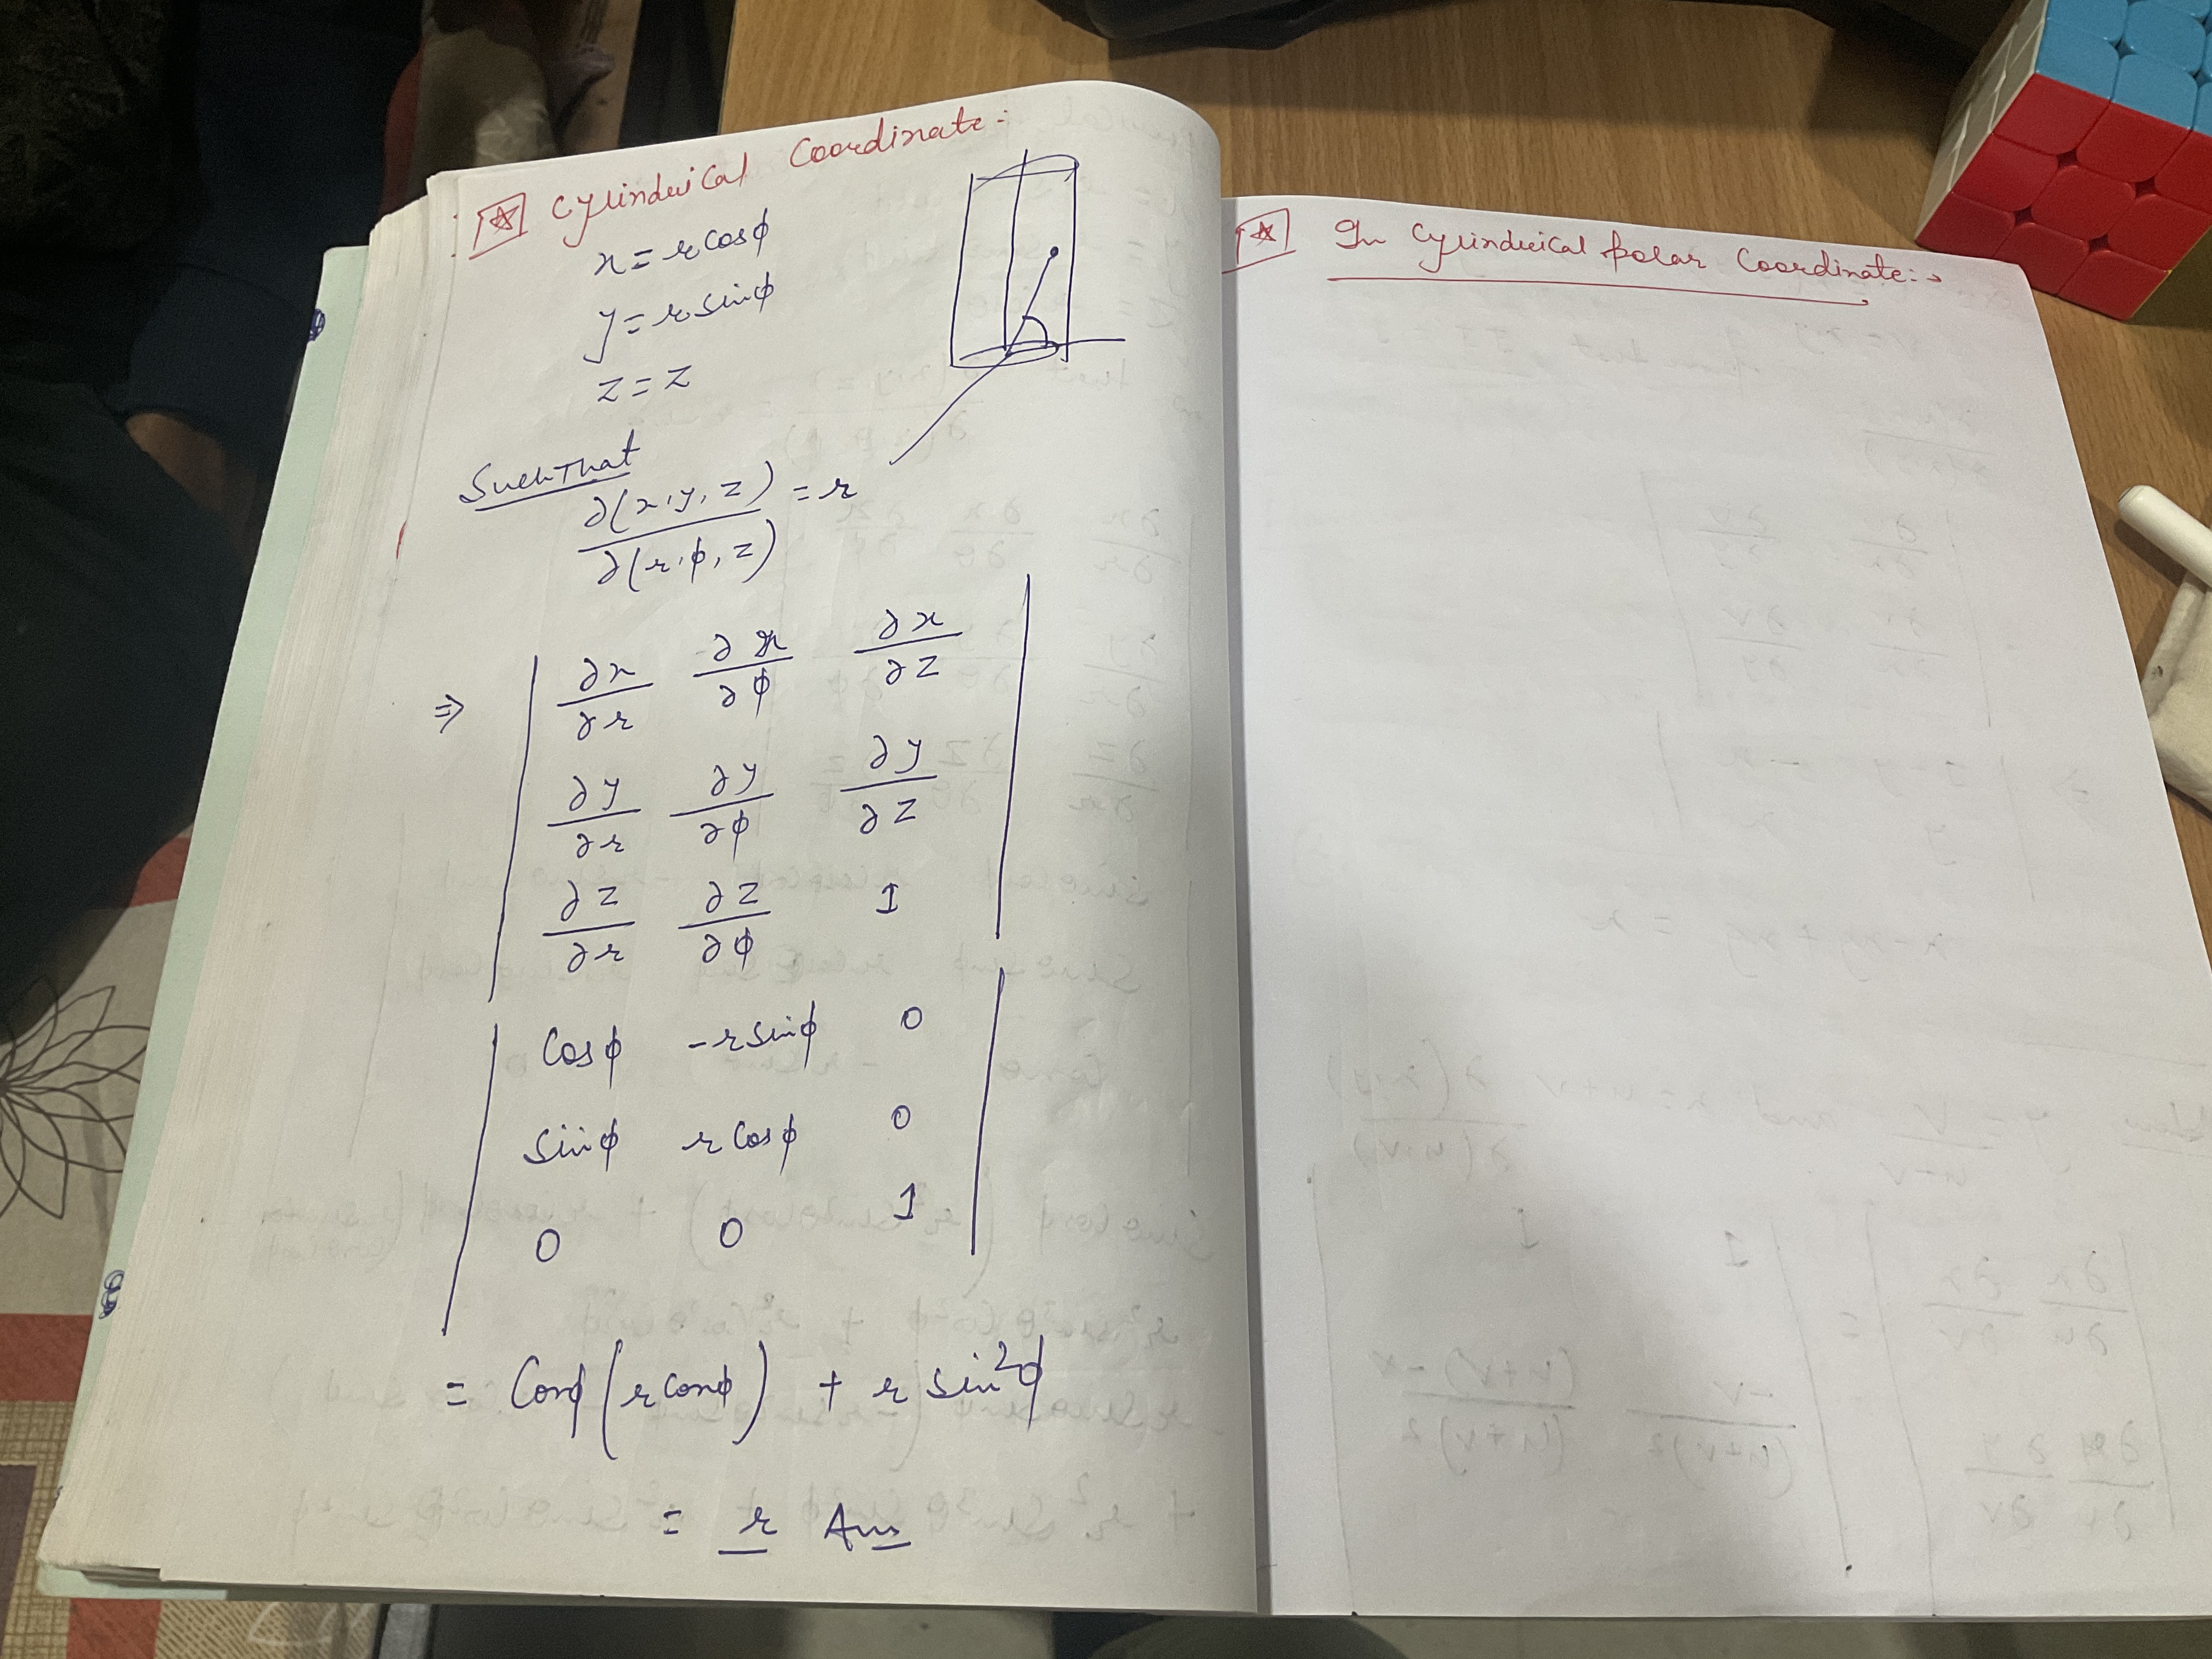 Cylindrical Coordinate:-
x = r cosϕ
y = r sinϕ
z = z
Such That
∂(x, y, z) / ∂(r, ϕ, z) = r
⇒ | ∂x/∂r ∂x/∂ϕ ∂x/∂z |
| ∂y/∂r ∂y/∂ϕ ∂y/∂z |
| ∂z/∂r ∂z/∂ϕ 1 |
| Cosϕ -r sinϕ 0 |
| sinϕ r Cosϕ 0 |
| 0 0 1 |
= Cosϕ (r cosϕ) + r sin²ϕ
= r Ans
In Cylindrical polar Coordinate:→